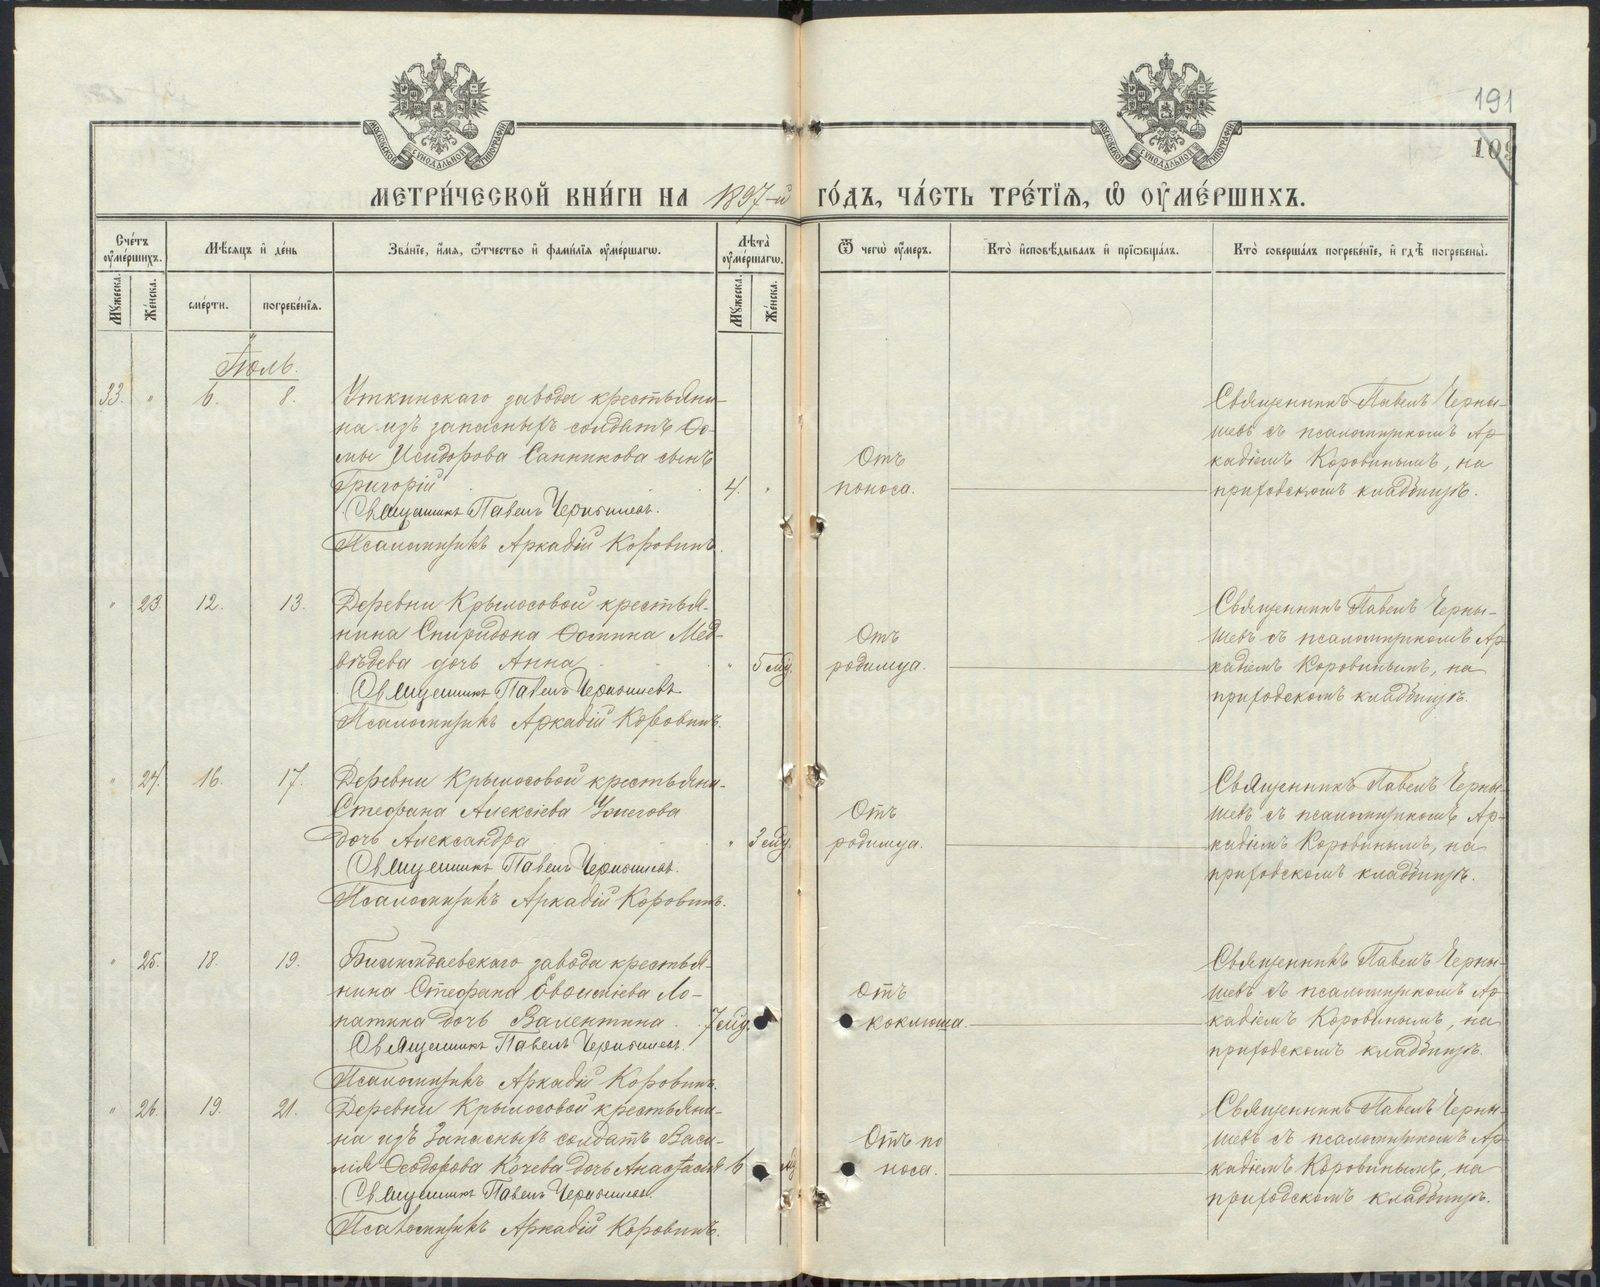 191
109
МОСКОВСКОЙ СѴНОДАЛЬНОЙ ТИПОГРАФІИ
МОСКОВСКОЙ СѴНОДАЛЬНОЙ ТИПОГРАФІИ
МЕТРИ́ЧЕСКОЙ КНИ́ГИ НА 1897-й ГО́ДЪ, ЧА́СТЬ ТРЕ́ТІЯ, Ѡ҆ ОУ҆МЕ́РШИХЪ.
Сче́тъ оу҆ме́ршихъ.
Мѣ́сяцъ и҆ де́нь
Зва́нїе, и҆́мя, ѻ҆́тчество и҆ фами́лїя оу҆ме́ршагѡ.
Лѣта̀ оу҆ме́ршагѡ.
Ѿ чегѡ̀ оу҆́меръ.
Кто̀ и҆сповѣ́дывалъ и҆ прїѡбща́лъ.
Кто̀ соверша́лъ погребе́нїе, и҆ гдѣ̀ погребены̀.
Мꙋ́жеска.
Же́нска.
сме́рти.
погребе́нїѧ.
Мꙋ́жеска.
Же́нска.
Іюль.
33. " 6. 8. Уткинскаго завода крестьяни-
на изъ запасныхъ солдатъ Ѳо-
мы Исидорова Санникова сынъ
Григорій 4. "
Священникъ Павелъ Чернышевъ.
Псаломщикъ Аркадій Коровинъ.
Отъ
поноса.
Священникъ Павелъ Черны-
шевъ съ псаломщикомъ Ар-
кадіемъ Коровинымъ, на
приходскомъ кладбищѣ.
" 23. 12. 13. Деревни Крылосовой крестья-
нина Спиридона Ѳомина Мед-
вѣдева дочь Анна " 5 мц.
Священникъ Павелъ Чернышевъ
Псаломщикъ Аркадій Коровинъ.
Отъ
родимца.
Священникъ Павелъ Черны-
шевъ съ псаломщикомъ Ар-
кадіемъ Коровинымъ, на
приходскомъ кладбищѣ.
" 24. 16. 17. Деревни Крылосовой крестьяни-
Стефана Алексіева
дочь Александра " 3 мц.
Священникъ Павелъ Чернышевъ.
Псаломщикъ Аркадій Коровинъ.
Отъ
родимца.
Священникъ Павелъ Черны-
шевъ съ псаломщикомъ Ар-
кадіемъ Коровинымъ, на
приходскомъ кладбищѣ.
" 25. 18. 19. Билимбаевскаго завода крестья-
нина Стефана Евѳиміева Ло-
патина дочь Валентина 7 мц.
Священникъ Павелъ Чернышевъ.
Псаломщикъ Аркадій Коровинъ.
Отъ
коклюша.
Священникъ Павелъ Черны-
шевъ съ псаломщикомъ Ар-
кадіемъ Коровинымъ, на
приходскомъ кладбищѣ.
" 26. 19. 21. Деревни Крылосовой крестьяни-
на изъ запасныхъ солдатъ Васи-
лія Ѳеодорова Кочева дочь Анастасія 6 мц
Священникъ Павелъ Чернышевъ.
Псаломщикъ Аркадій Коровинъ.
Отъ по
носа.
Священникъ Павелъ Черны-
шевъ съ псаломщикомъ Ар-
кадіемъ Коровинымъ, на
приходскомъ кладбищѣ.
METRIKI.GASO-URAL.RU